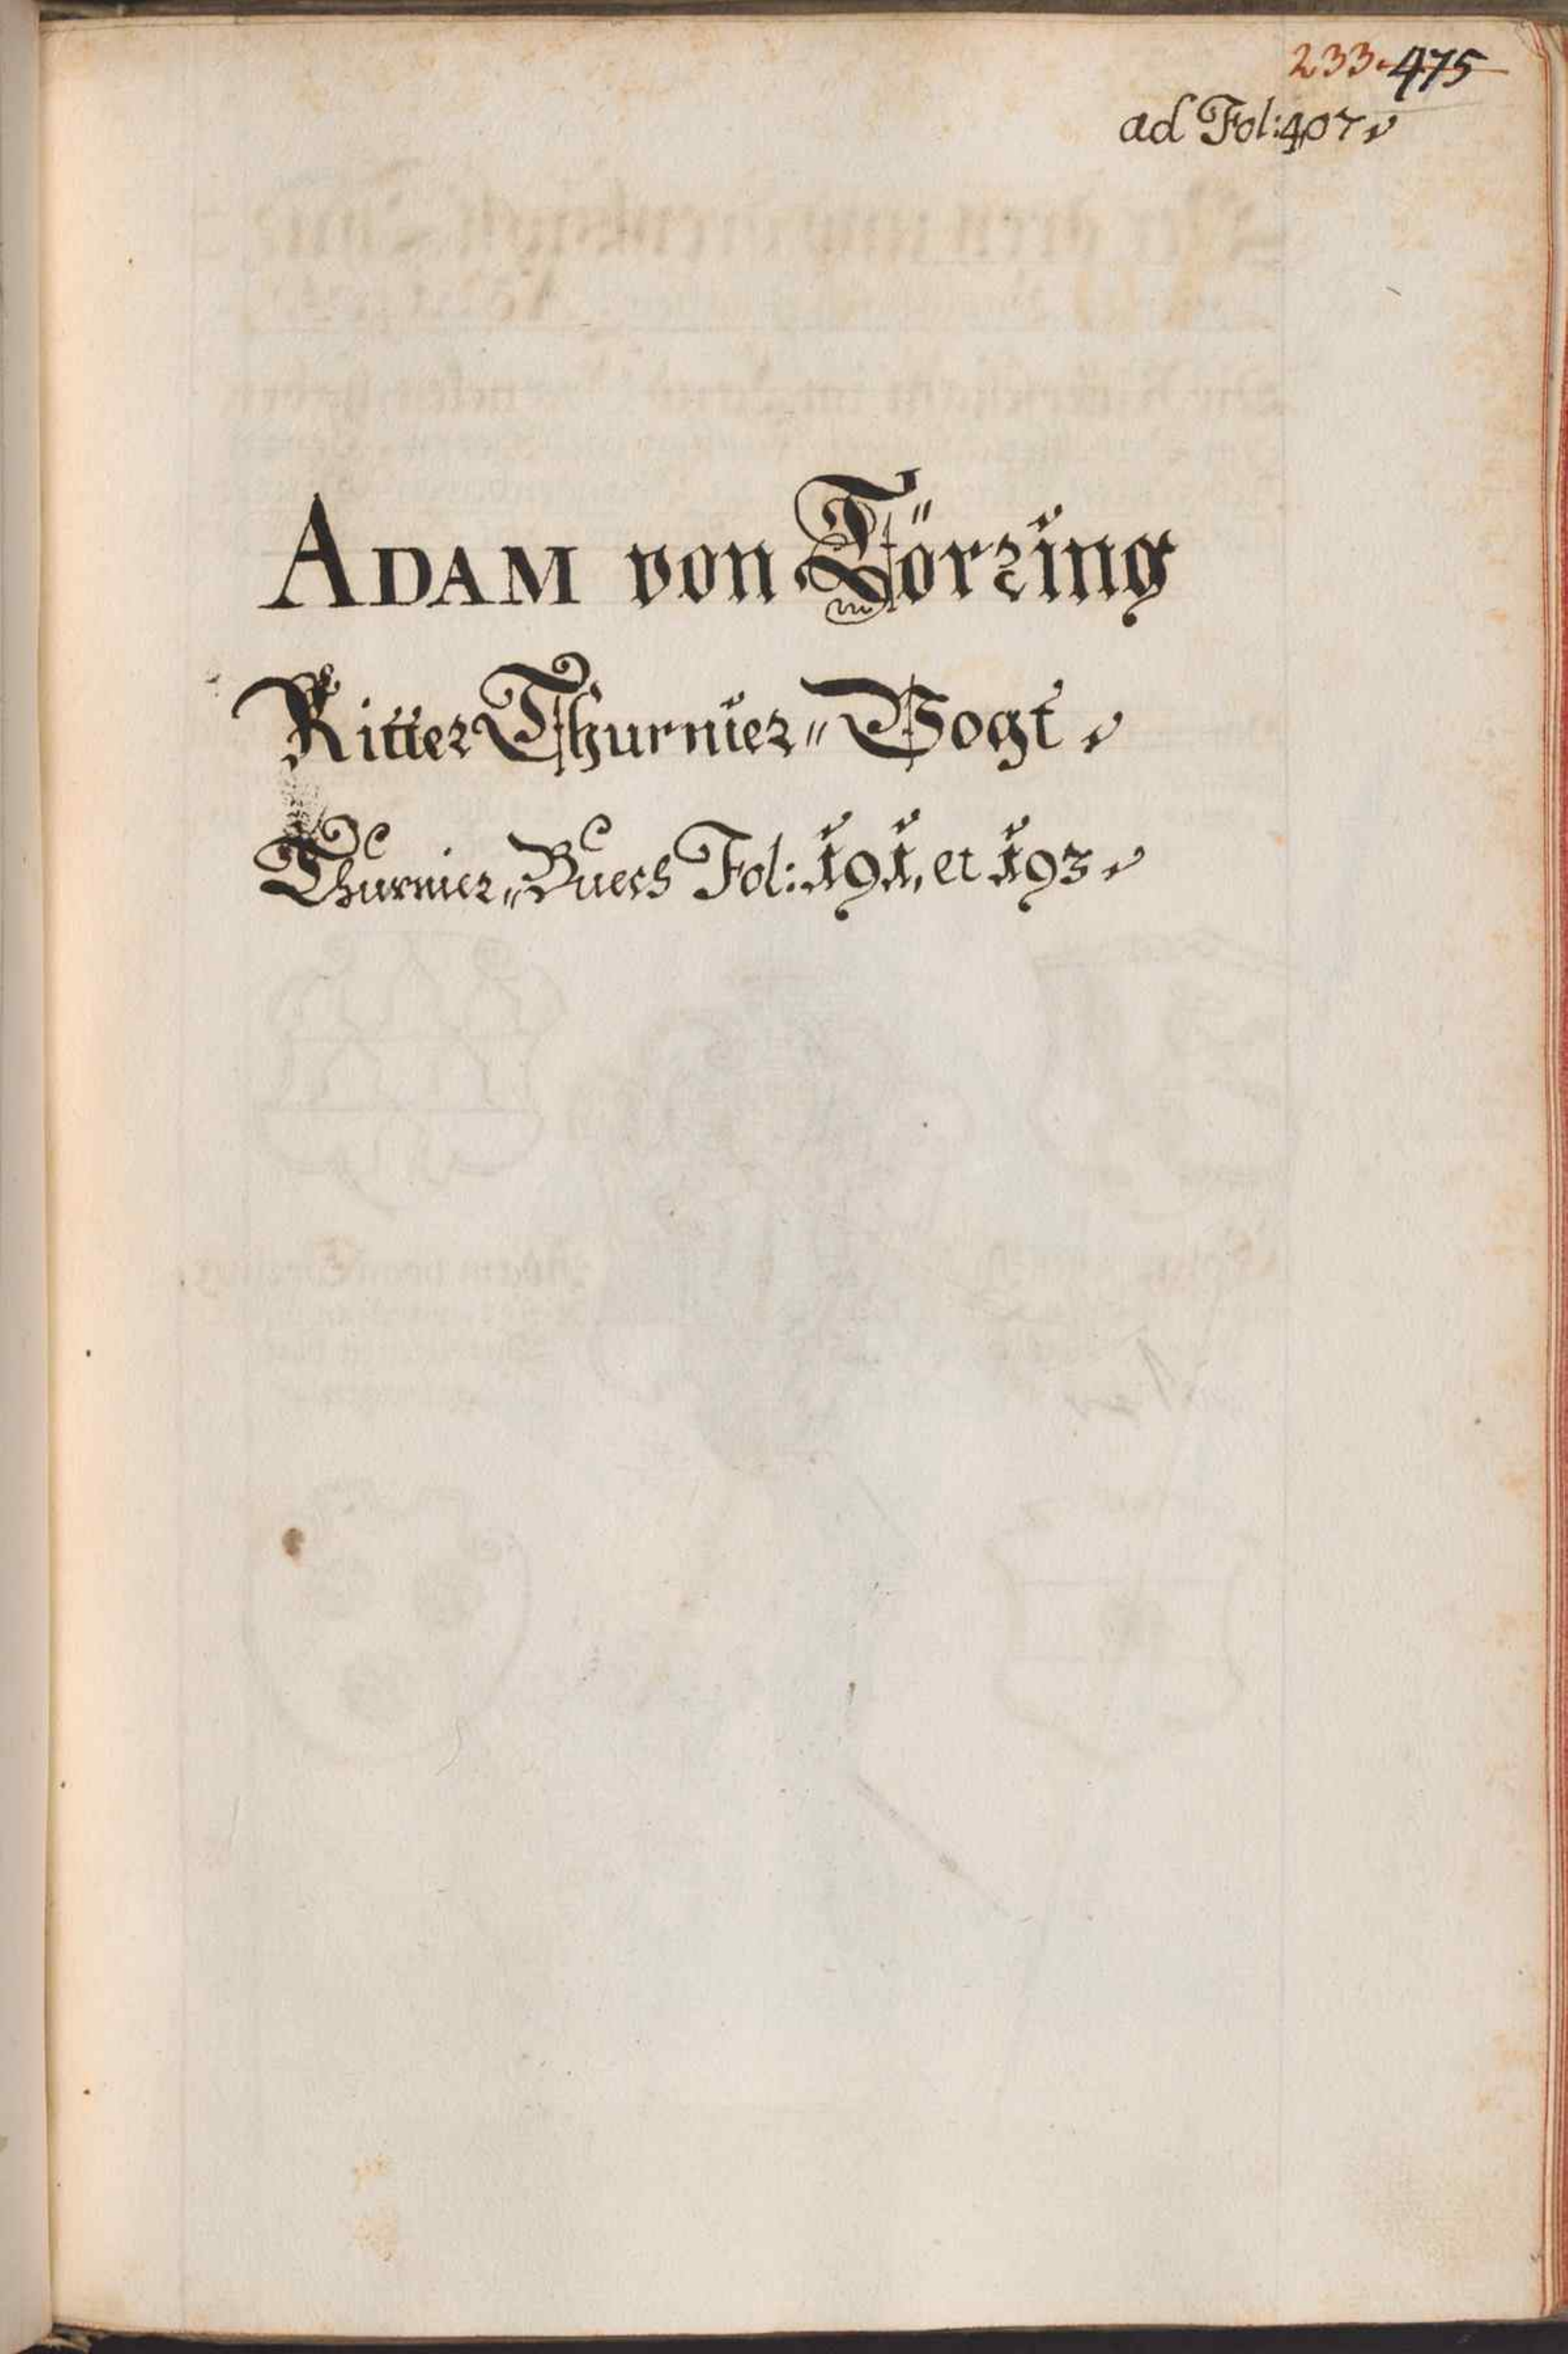 233. 475
ad Fol: 407
ADAM von Törring
Ritter Thurnier„Vogt
Thurnier„Buech Fol: 191, et 193